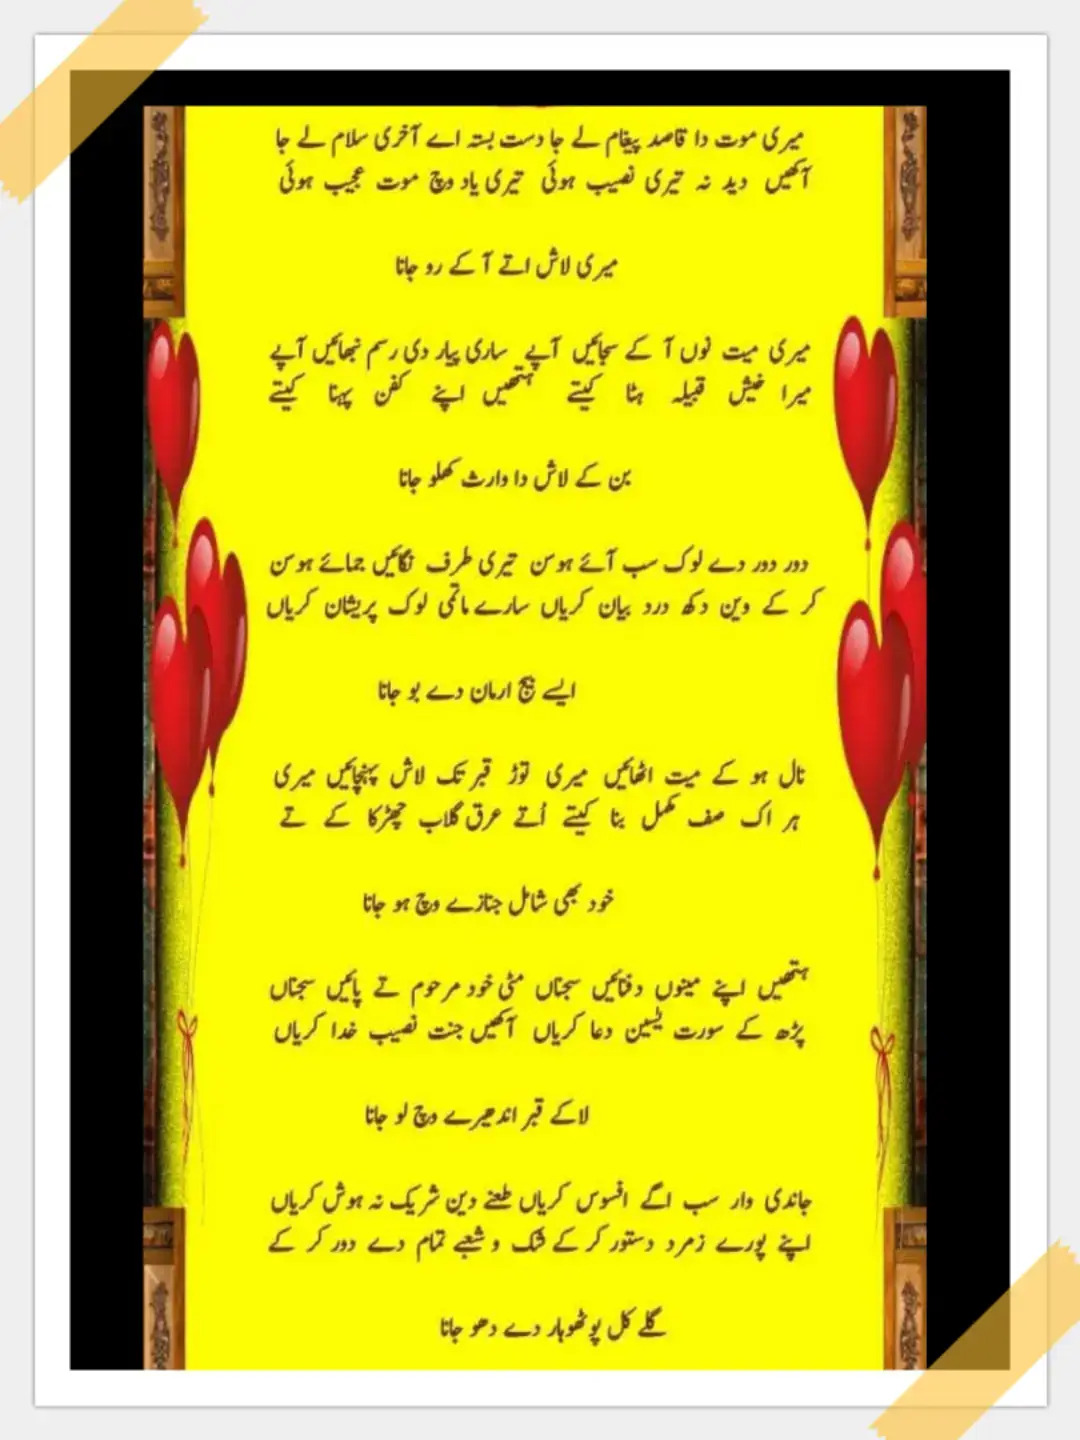 میری موت دا قاصد پیغام لے جا دست بستہ اے آخری سلام لے جا
آکھیں دید نہ تیری نصیب ہوئی تیری یاد وچ موت عجیب ہوئی
میری لاش اتے آ کے رو جانا
میری میت نوں آ کے سجائیں آپے ساری پیار دی رسم نبھائیں آپے
میرا خیش قبیلہ ہٹا کیتے ہتھیں اپنے کفن پہنا کیتے
بن کے لاش دا وارث کھلو جانا
دور دور دے لوک سب آئے ہوسن تیری طرف نگائیں جمائے ہوسن
کر کے وین دکھ درد بیان کریاں سارے ماتمی لوک پریشان کریاں
ایسے بیج ارمان دے بو جانا
نال ہو کے میت اٹھائیں میری توڑ قبر تک لاش پہنچائیں میری
ہر اک صف مکمل بنا کیتے اُتے عرق گلاب چھڑکا کے تے
خود بھی شامل جنازے وچ ہو جانا
ہتھیں اپنے مینوں دفنائیں سجناں مٹی خود مرحوم تے پائیں سجناں
پڑھ کے سورت یٰسین دعا کریاں آکھیں جنت نصیب خدا کریاں
لاکے قبر اندھیرے وچ لو جانا
جاندی وار سب اگے افسوس کریاں طعنے دین شریک نہ ہوش کریاں
اپنے پورے زمرد دستور کر کے شک و شعبے تمام دے دور کر کے
گلے کل پوٹھوہار دے دھو جانا